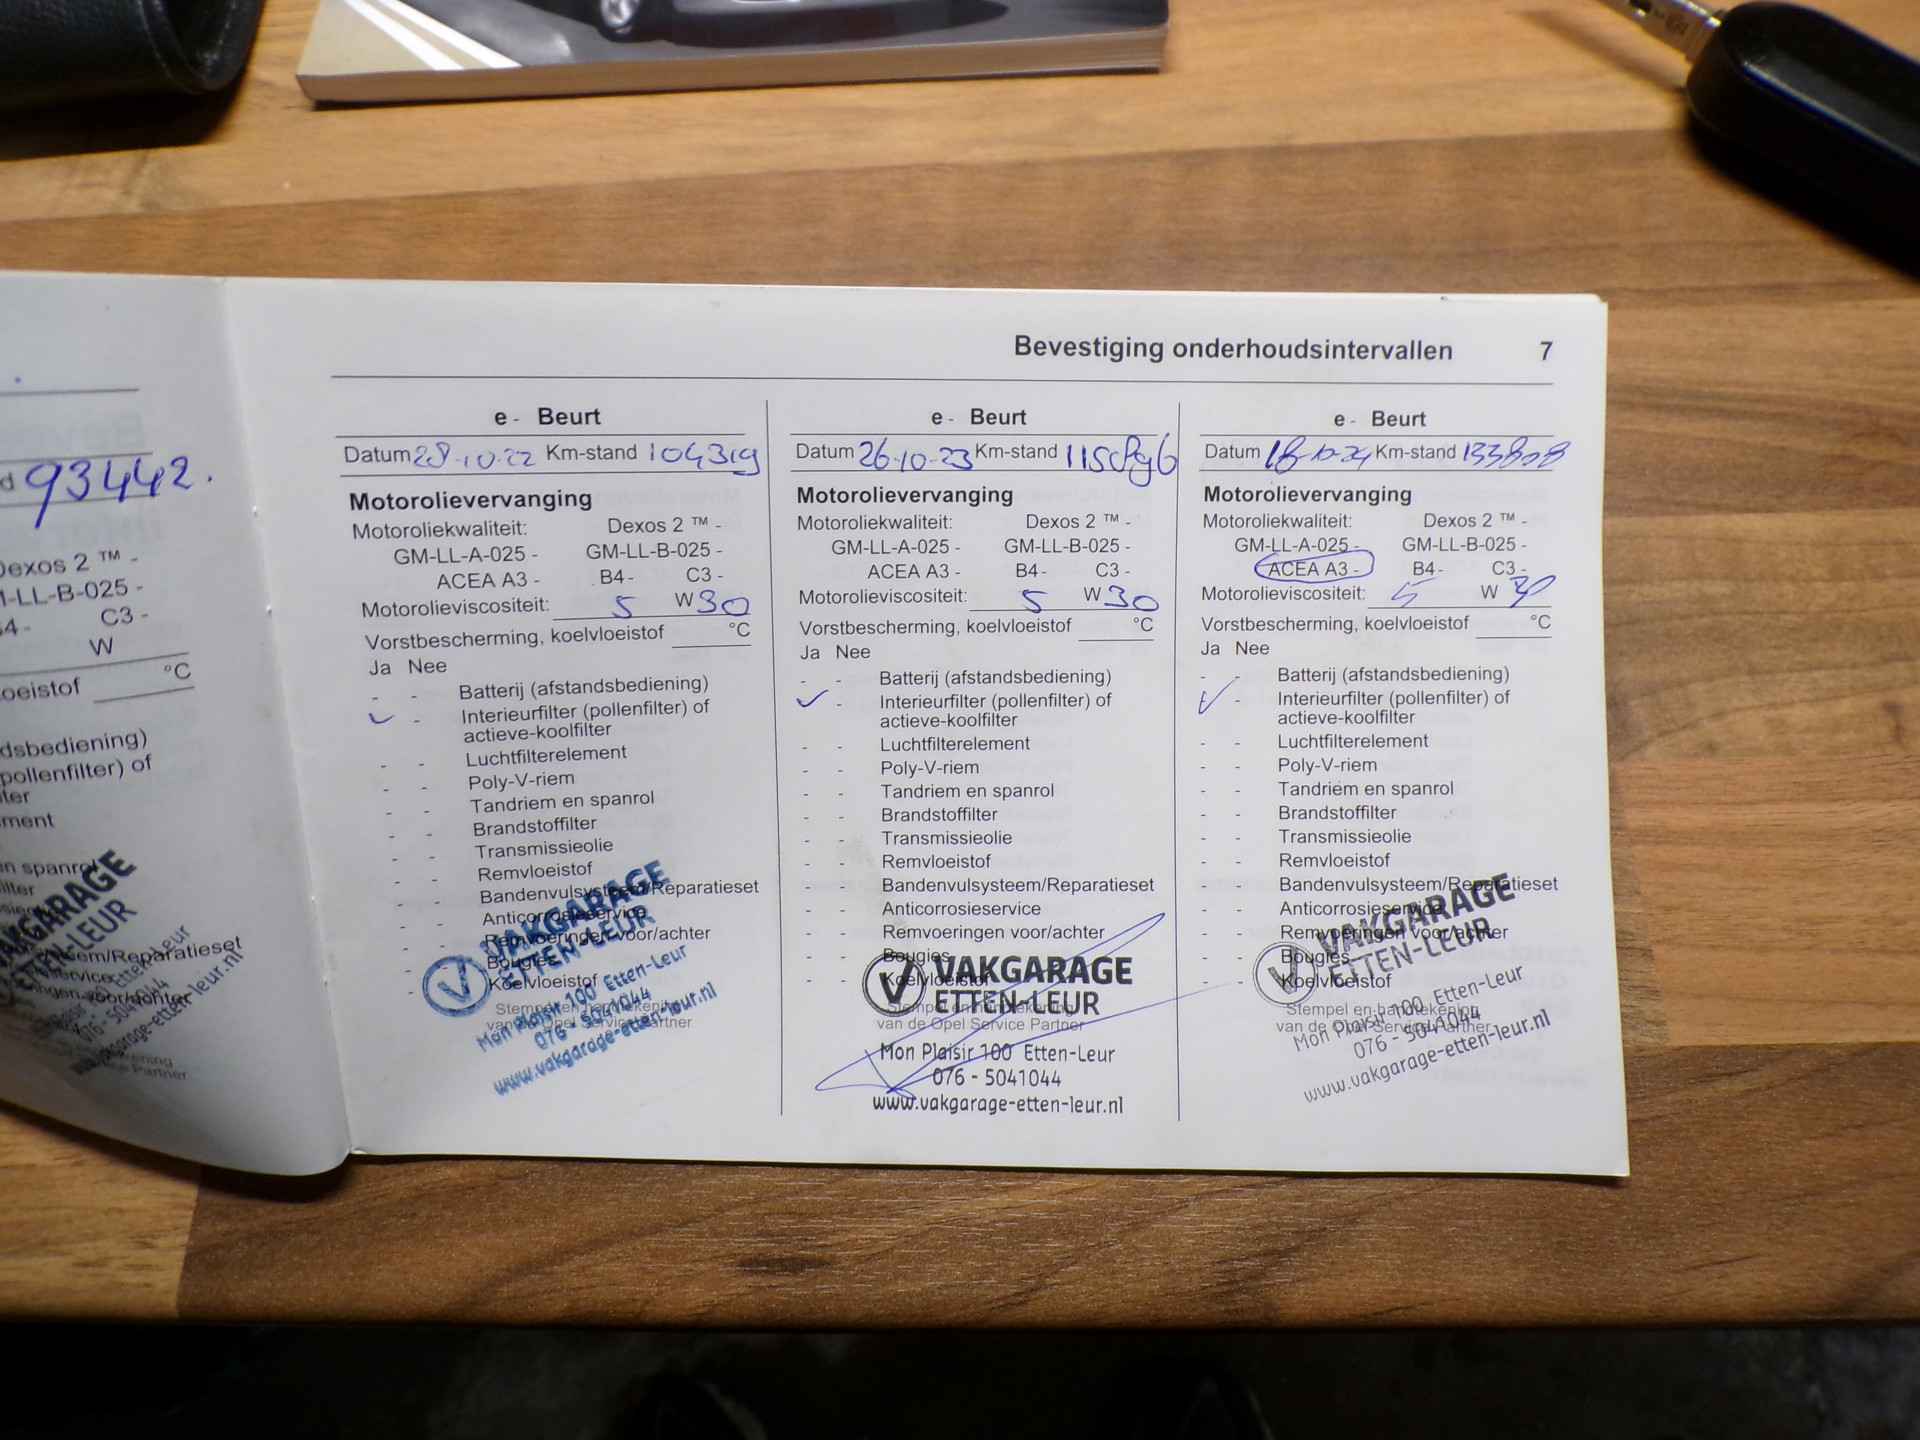 Bevestiging onderhoudsintervallen 7
93442.
Dexos 2 ™ -
-LL-B-025 -
C3 -
W
°C
dsbediening)
pollenfilter) of
ment
n spanrol
VAKGARAGE
ETTEN-LEUR
eem/Reparatieset
service
ingen voor/achter
076 - 5041044
e - Beurt
Datum 28-10-22 Km-stand 104319
Motorolievervanging
Motoroliekwaliteit: Dexos 2 ™ -
GM-LL-A-025 - GM-LL-B-025 -
ACEA A3 - B4 - C3 -
Motorolieviscositeit: 5 W 30
Vorstbescherming, koelvloeistof °C
Ja Nee
- - Batterij (afstandsbediening)
✓ - Interieurfilter (pollenfilter) of
actieve-koolfilter
- - Luchtfilterelement
- - Poly-V-riem
- - Tandriem en spanrol
- - Brandstoffilter
- - Transmissieolie
- - Remvloeistof
- - Bandenvulsysteem/Reparatieset
- - Anticorrosieservice
- - Remvoeringen voor/achter
- - Bougies
- - Koelvloeistof
Stempel en handtekening
van de Opel Service Partner
VAKGARAGE
ETTEN-LEUR
Mon Plaisir 100 Etten-Leur
076 - 5041044
www.vakgarage-etten-leur.nl
e - Beurt
Datum 26-10-23 Km-stand
Motorolievervanging
Motoroliekwaliteit: Dexos 2 ™ -
GM-LL-A-025 - GM-LL-B-025 -
ACEA A3 - B4 - C3 -
Motorolieviscositeit: 5 W 30
Vorstbescherming, koelvloeistof °C
Ja Nee
- - Batterij (afstandsbediening)
✓ - Interieurfilter (pollenfilter) of
actieve-koolfilter
- - Luchtfilterelement
- - Poly-V-riem
- - Tandriem en spanrol
- - Brandstoffilter
- - Transmissieolie
- - Remvloeistof
- - Bandenvulsysteem/Reparatieset
- - Anticorrosieservice
- - Remvoeringen voor/achter
- - Bougies
- - Koelvloeistof
Stempel en handtekening
van de Opel Service Partner
VAKGARAGE
ETTEN-LEUR
Mon Plaisir 100 Etten-Leur
076 - 5041044
www.vakgarage-etten-leur.nl
e - Beurt
Datum 18-10-24 Km-stand 133808
Motorolievervanging
Motoroliekwaliteit: Dexos 2 ™ -
GM-LL-A-025 - GM-LL-B-025 -
ACEA A3 - B4 - C3 -
Motorolieviscositeit: 5 W 30
Vorstbescherming, koelvloeistof °C
Ja Nee
- - Batterij (afstandsbediening)
✓ - Interieurfilter (pollenfilter) of
actieve-koolfilter
- - Luchtfilterelement
- - Poly-V-riem
- - Tandriem en spanrol
- - Brandstoffilter
- - Transmissieolie
- - Remvloeistof
- - Bandenvulsysteem/Reparatieset
- - Anticorrosieservice
- - Remvoeringen voor/achter
- - Bougies
- - Koelvloeistof
Stempel en handtekening
van de Opel Service Partner
VAKGARAGE
ETTEN-LEUR
Mon Plaisir 100 Etten-Leur
076 - 5041044
www.vakgarage-etten-leur.nl